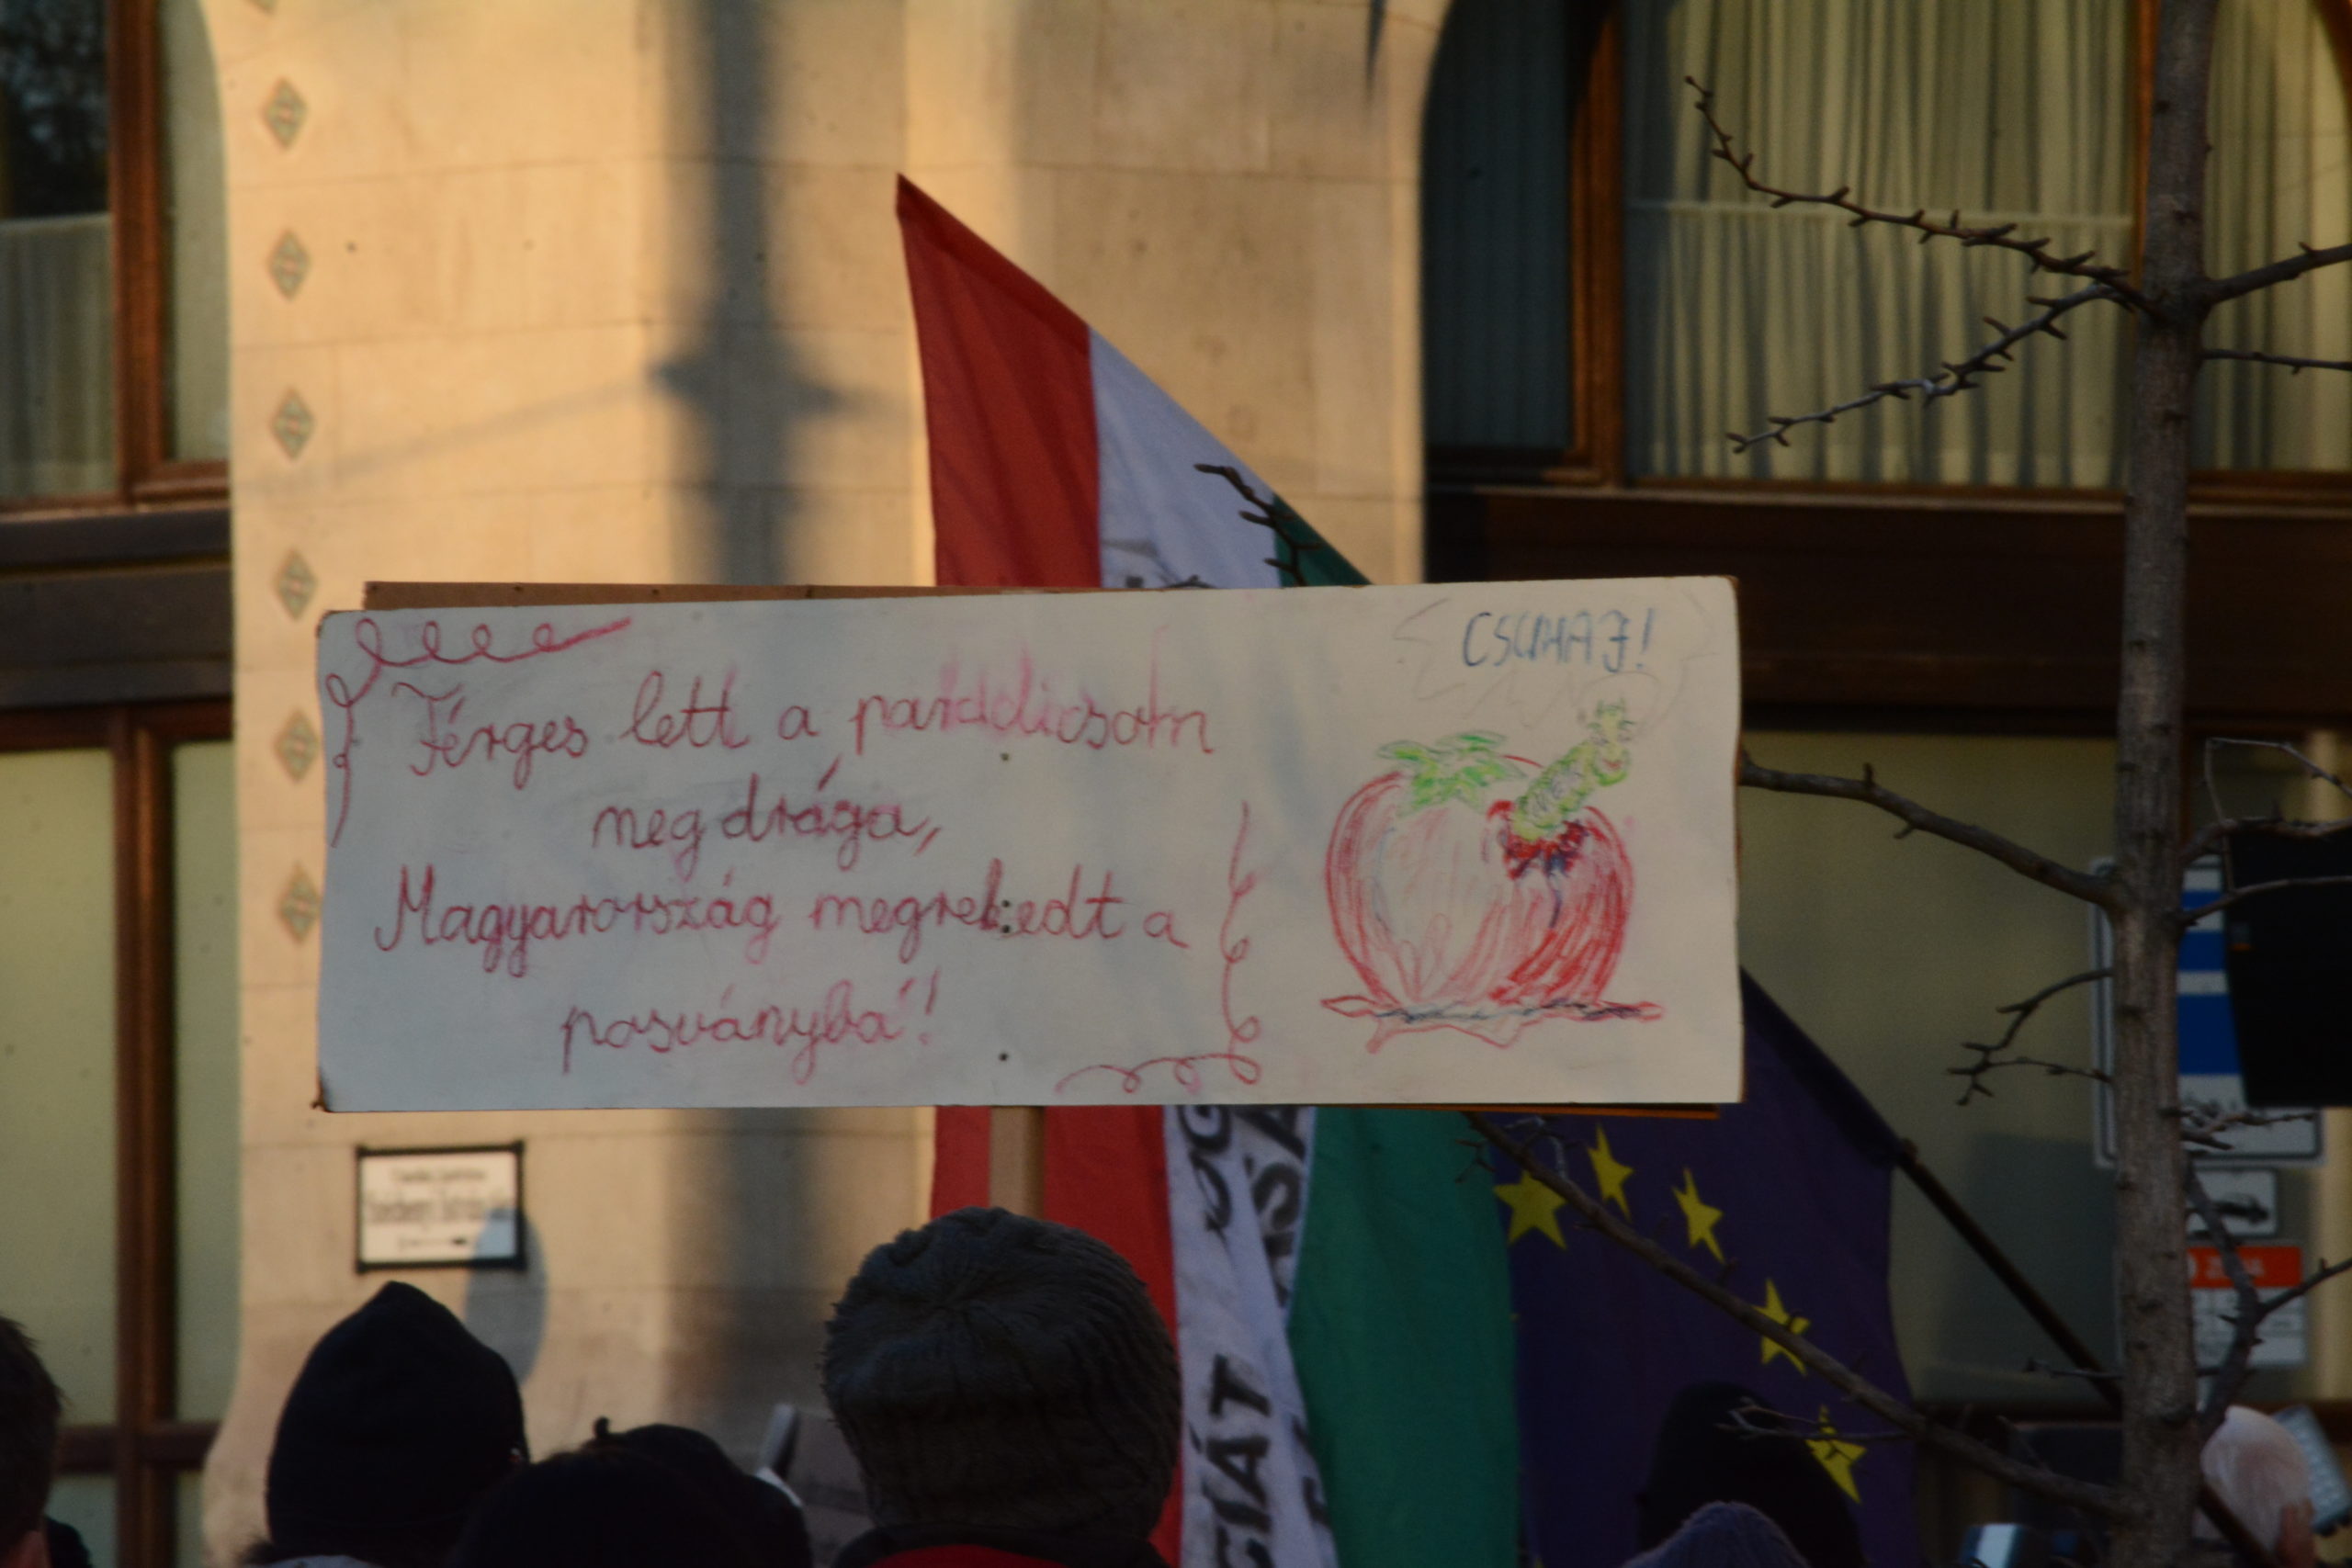 CSUHAJ!
Férges lett a paradicsom
meg drága,
Magyarország megrekedt a
posványba!
CIÁT